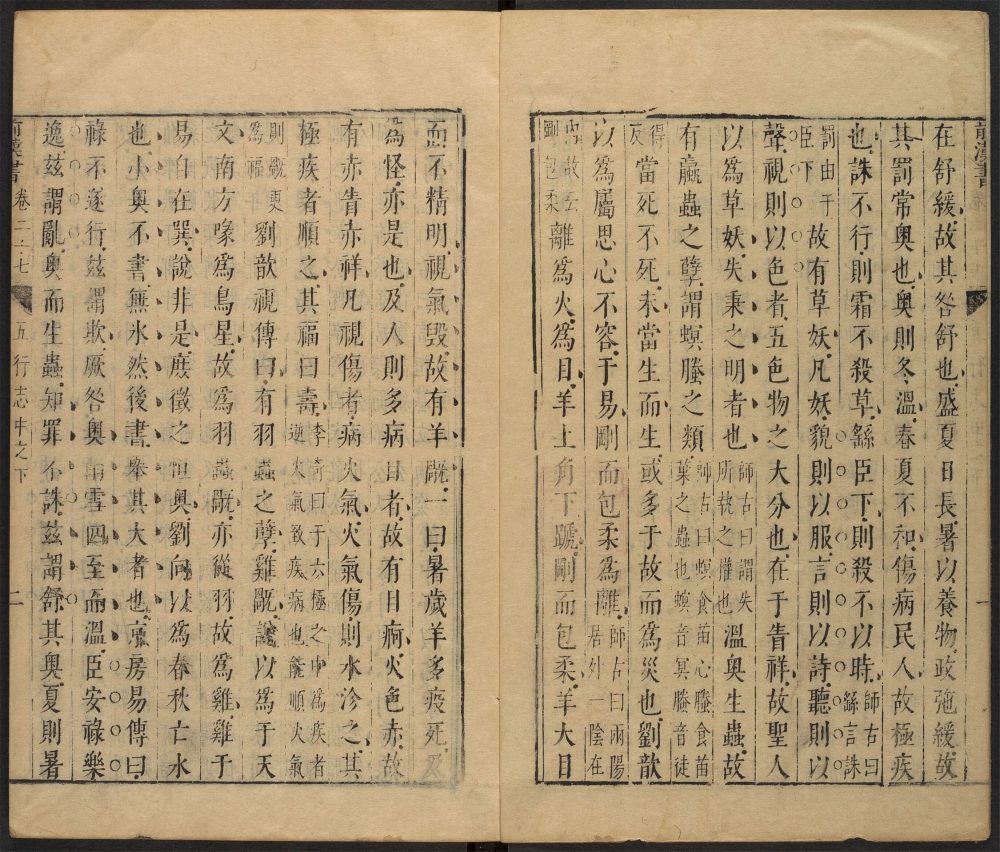 在舒緩故其咎舒也盛夏日長暑以養物政弛緩故
其罰常奧也奧則冬溫春夏不和傷病民人故極疾
也誅不行則霜不殺草繇臣下則殺不以時師古曰繇言誅
罰由于臣下故有草妖凡妖貌則以服言則以詩聽則以
聲視則以色者五色物之大分也在于眚祥故聖人
以爲草妖失秉之明者也師古曰謂失所執之權也溫奧生蟲故
有臝蟲之孽謂螟螣之類師古曰螟食苗心螣食苗葉之蟲也螟音冥螣音徒
得反當死不死未當生而生或多于故而爲災也劉歆
以爲屬思心不容于易剛而包柔爲離師古曰兩陽居外一陰在
內故云剛包柔離爲火爲目羊上角下蹏剛而包柔羊大目
前漢書
一
而不精明視氣毀故有羊旤一曰暑歲羊多疫死及
爲怪亦是也及人則多病目者故有目痾火色赤故
有赤眚赤祥凡視傷者病火氣火氣傷則水沴之其
極疾者順之其福曰壽李奇曰于六極之中爲疾者逆火氣致疾病也能順火氣
則旤更爲福劉歆視傳曰有羽蟲之孽雞旤說以爲于天
文南方喙爲鳥星故爲羽蟲旤亦從羽故爲雞雞于
易自在巽說非是庶徵之恒奧劉向以爲春秋亡冰
也小奧不書無冰然後書舉其大者也京房易傳曰
祿不遂行茲謂欺厥咎奧雨雪四至而溫臣安祿樂
逸茲謂亂奧而生蟲知罪不誅茲謂舒其奧夏則暑
前漢書 卷二十七 五行志中之下 二